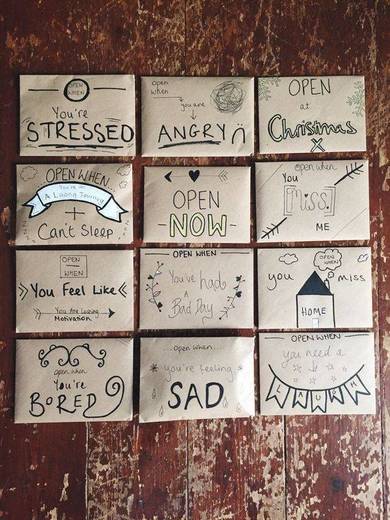 OPEN
WHEN
You're
STRESSED
Open
When
you are
ANGRY
OPEN
at
Christmas
X
OPEN WHEN
You're on
A Loong Journey
+
Can't Sleep
OPEN
NOW
open when
You
miss
ME
OPEN
WHEN
You Feel Like
You Are Loosing
Motivation
OPEN WHEN
You've had
A
Bad Day
OPEN
WHEN
you miss
HOME
open when
You're
BORED
Open when
you're feeling
SAD
OPEN WHEN
you need a
LAUGH